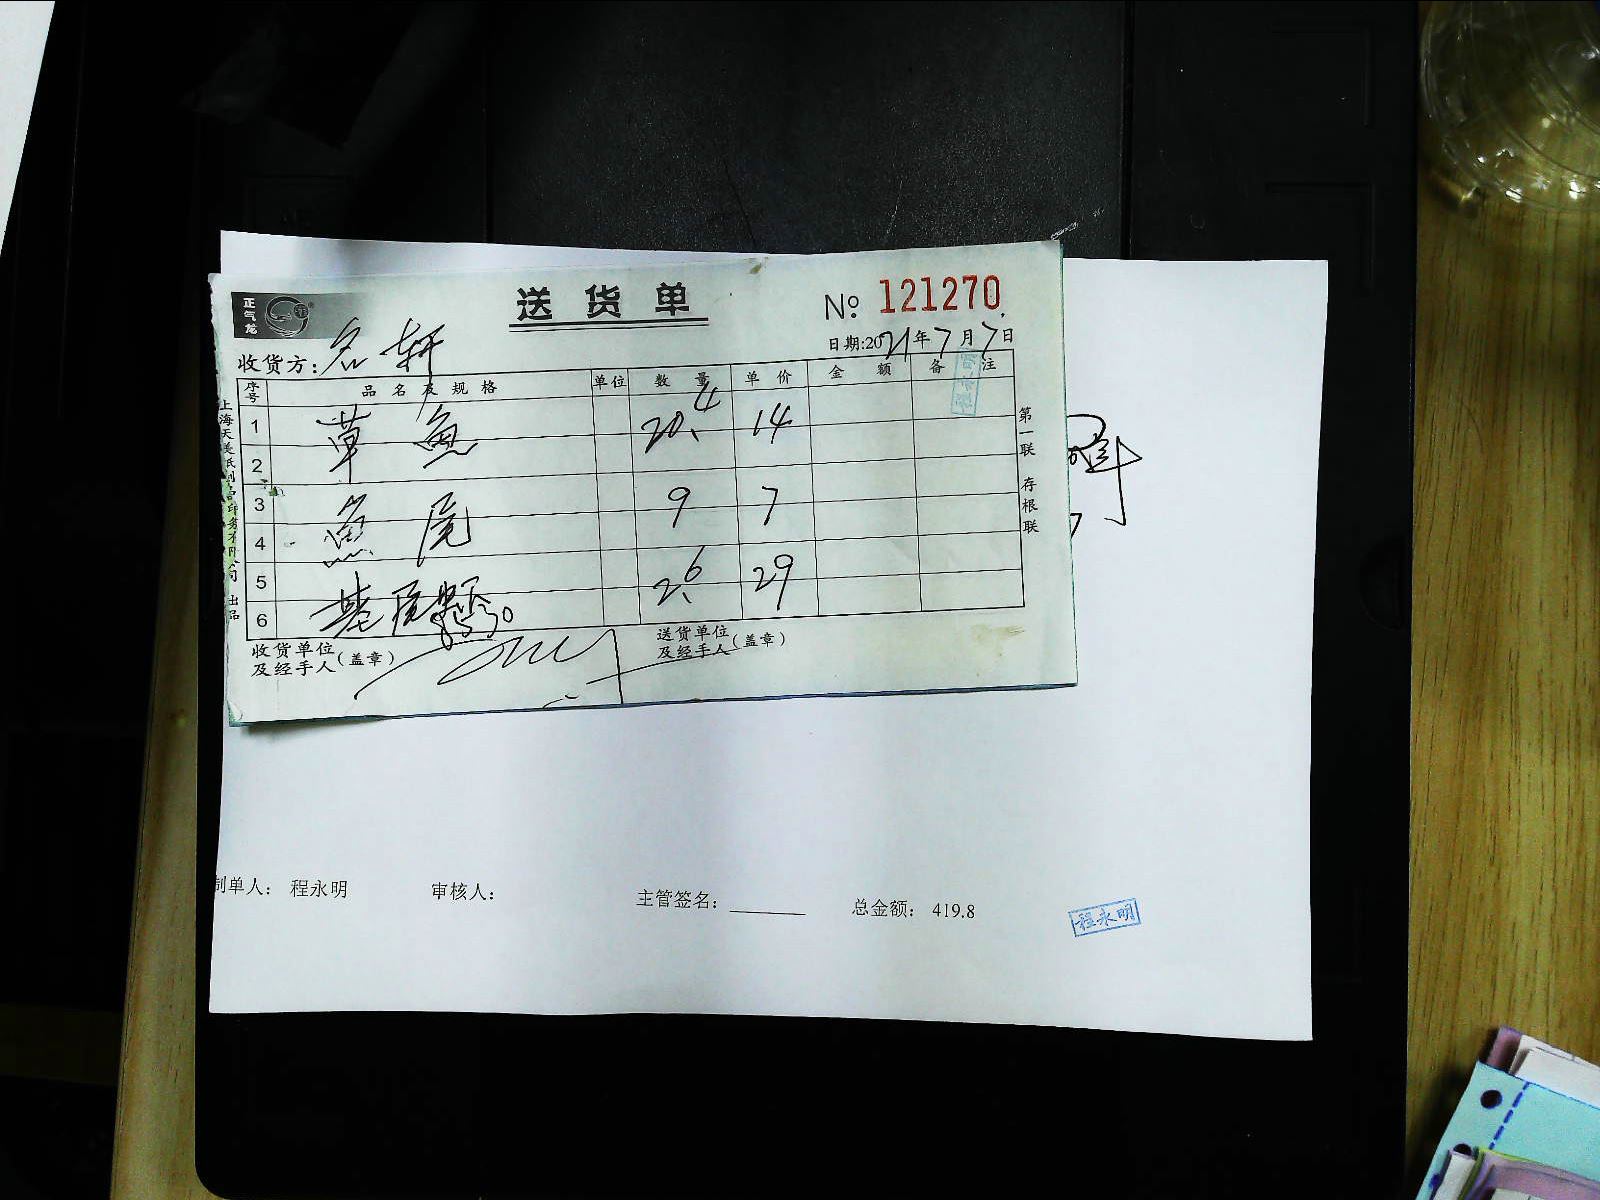 正气龙
送货单
№ 121270
收货方：名轩
日期:2021年7月7日
序号 品名及规格 单位 数量 单价 金额 备注
程永明
1 草鱼 20.4 14
2
3 鱼尾 9 7
4
5 基尾虾 2.6 29
6
收货单位及经手人（盖章）
送货单位及经手人（盖章）
第一联 存根联
上海天美纸制品印务有限公司 出品
制单人： 程永明 审核人： 主管签名： 总金额： 419.8
程永明